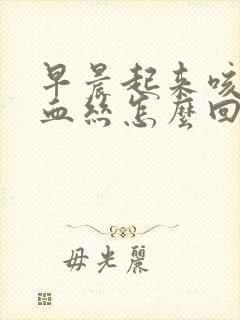 早晨起来咳
血丝怎麼回
毋光麗